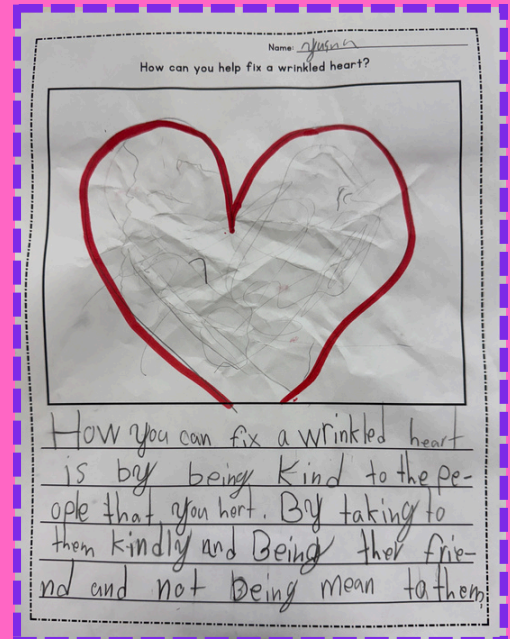 Name:
How can you help fix a wrinkled heart?
How you can fix a wrinkled heart
is by being kind to the pe-
ople that you hert. By taking to
them kindly and Being ther frie-
nd and not being mean to them